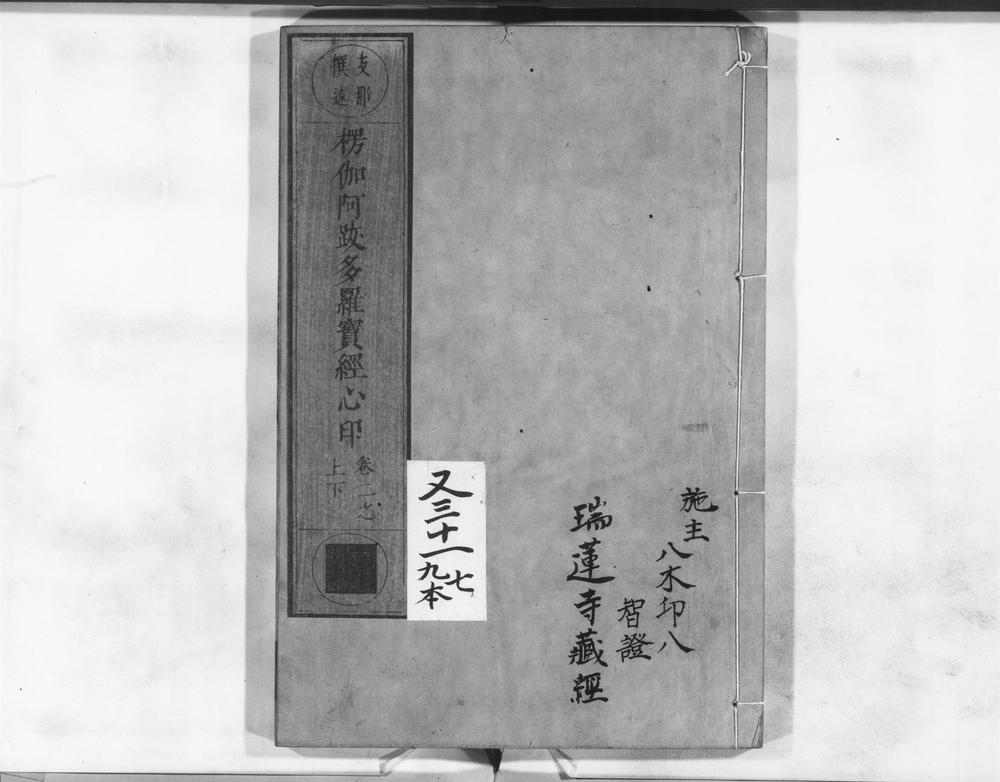 支那
撰述
楞伽阿跋多羅寶經心印
卷二之
上下
又三十一
七
九本
施主
八木印八
智證
瑞蓮寺藏經